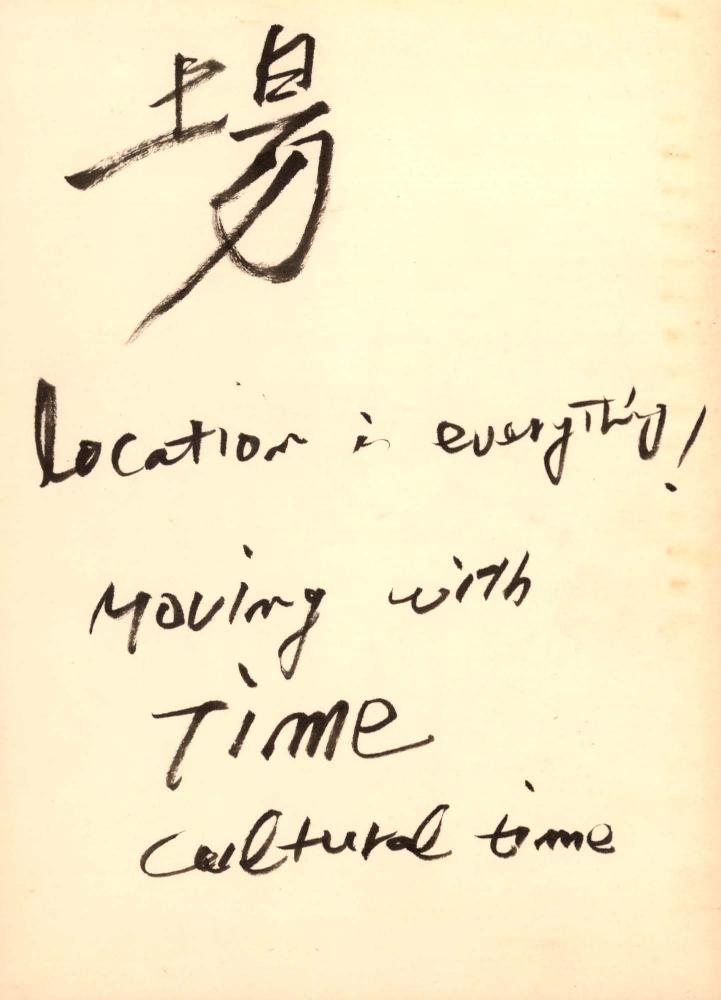 場
Location is everything!
Moving with
Time
Cultural time